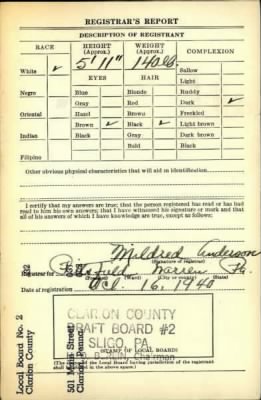 REGISTRAR'S REPORT
DESCRIPTION OF REGISTRANT
RACE
HEIGHT
(Approx.)
WEIGHT
(Approx.)
COMPLEXION
5' 11"
140 lb.
White ✓
Sallow
EYES
HAIR
Light
Negro
Blue
Blonde
Ruddy
Gray
Red
Dark ✓
Oriental
Hazel
Brown
Freckled
Brown ✓
Black ✓
Light brown
Indian
Black
Gray
Dark brown
Bald
Black
Filipino
Other obvious physical characteristics that will aid in identification
I certify that my answers are true; that the person registered has read or has
had read to him his own answers; that I have witnessed his signature or mark and that
all of his answers of which I have knowledge are true, except as follows:
Mildred Anderson
(Signature of registrar)
Registrar for
Warren Pa.
Date of registration Oct. 16, 1940
Local Board No. 2
Clarion County
501 Main Street
Clarion Penna.
CLARION COUNTY
DRAFT BOARD #2
SLIGO, PA.
Chairman
(STAMP OF LOCAL BOARD)
(The stamp of the Local Board having jurisdiction of the registrant
shall be placed in the above space.)